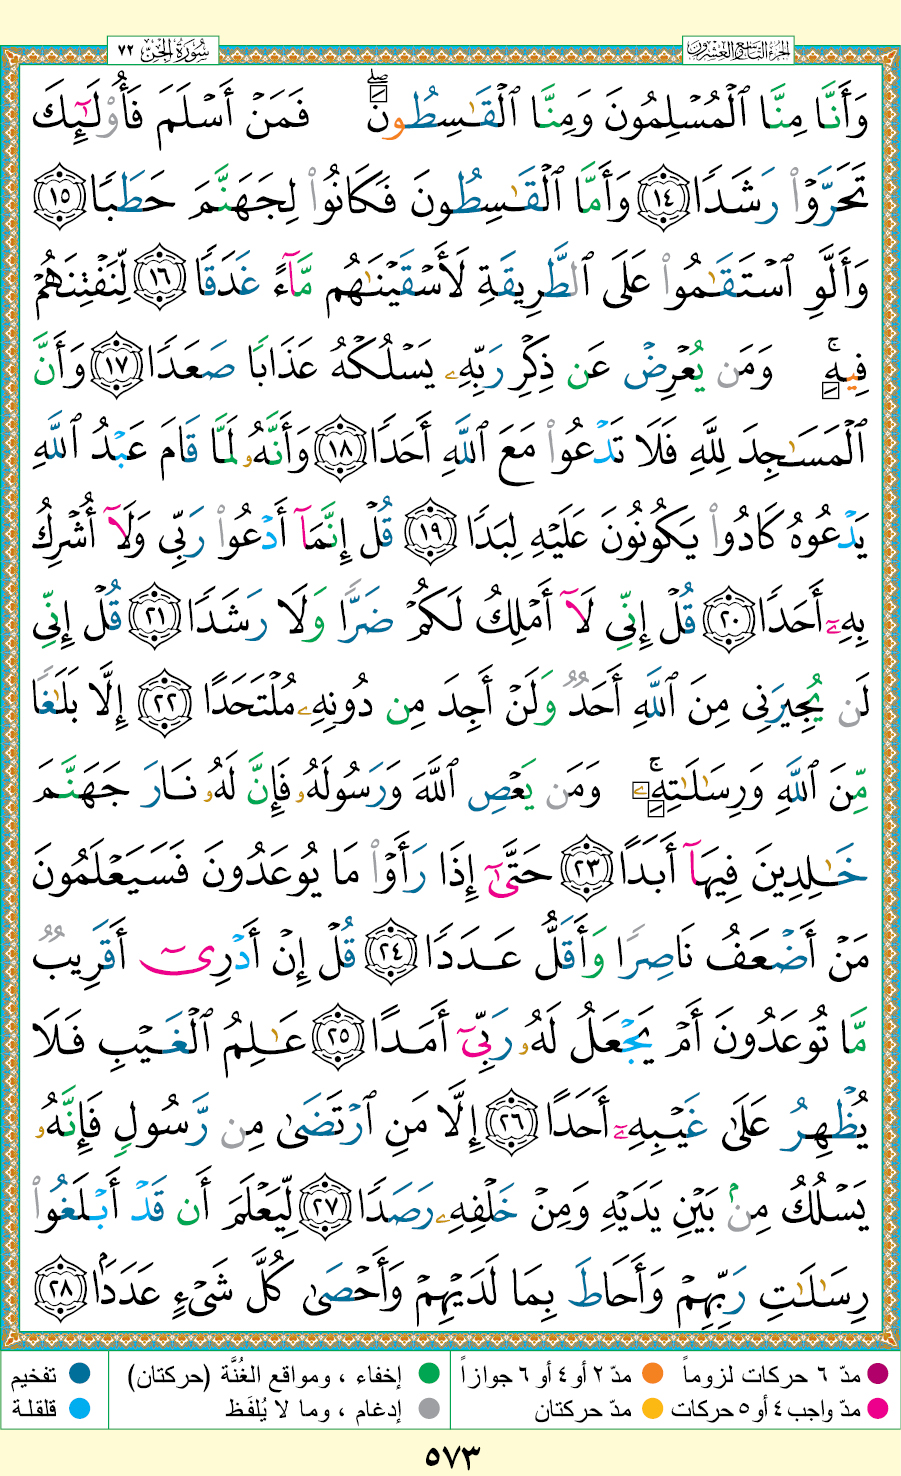 سُورَةُ الجِنّ ٧٢
الجزء التاسع والعشرون
وَأَنَّا مِنَّا ٱلْمُسْلِمُونَ وَمِنَّا ٱلْقَٰسِطُونَۖ فَمَنْ أَسْلَمَ فَأُو۟لَٰٓئِكَ
تَحَرَّوْا۟ رَشَدًا ١٤ وَأَمَّا ٱلْقَٰسِطُونَ فَكَانُوا۟ لِجَهَنَّمَ حَطَبًا ١٥
وَأَلَّوِ ٱسْتَقَٰمُوا۟ عَلَى ٱلطَّرِيقَةِ لَأَسْقَيْنَٰهُم مَّآءً غَدَقًا ١٦ لِّنَفْتِنَهُمْ
فِيهِۚ وَمَن يُعْرِضْ عَن ذِكْرِ رَبِّهِۦ يَسْلُكْهُ عَذَابًا صَعَدًا ١٧ وَأَنَّ
ٱلْمَسَٰجِدَ لِلَّهِ فَلَا تَدْعُوا۟ مَعَ ٱللَّهِ أَحَدًا ١٨ وَأَنَّهُۥ لَمَّا قَامَ عَبْدُ ٱللَّهِ
يَدْعُوهُ كَادُوا۟ يَكُونُونَ عَلَيْهِ لِبَدًا ١٩ قُلْ إِنَّمَآ أَدْعُوا۟ رَبِّى وَلَآ أُشْرِكُ
بِهِۦٓ أَحَدًا ٢٠ قُلْ إِنِّى لَآ أَمْلِكُ لَكُمْ ضَرًّا وَلَا رَشَدًا ٢١ قُلْ إِنِّى
لَن يُجِيرَنِى مِنَ ٱللَّهِ أَحَدٌ وَلَنْ أَجِدَ مِن دُونِهِۦ مُلْتَحَدًا ٢٢ إِلَّا بَلَٰغًا
مِّنَ ٱللَّهِ وَرِسَٰلَٰتِهِۦۚ وَمَن يَعْصِ ٱللَّهَ وَرَسُولَهُۥ فَإِنَّ لَهُۥ نَارَ جَهَنَّمَ
خَٰلِدِينَ فِيهَآ أَبَدًا ٢٣ حَتَّىٰٓ إِذَا رَأَوْا۟ مَا يُوعَدُونَ فَسَيَعْلَمُونَ
مَنْ أَضْعَفُ نَاصِرًا وَأَقَلُّ عَدَدًا ٢٤ قُلْ إِنْ أَدْرِىٓ أَقَرِيبٌ
مَّا تُوعَدُونَ أَمْ يَجْعَلُ لَهُۥ رَبِّىٓ أَمَدًا ٢٥ عَٰلِمُ ٱلْغَيْبِ فَلَا
يُظْهِرُ عَلَىٰ غَيْبِهِۦٓ أَحَدًا ٢٦ إِلَّا مَنِ ٱرْتَضَىٰ مِن رَّسُولٍ فَإِنَّهُۥ
يَسْلُكُ مِنۢ بَيْنِ يَدَيْهِ وَمِنْ خَلْفِهِۦ رَصَدًا ٢٧ لِّيَعْلَمَ أَن قَدْ أَبْلَغُوا۟
رِسَٰلَٰتِ رَبِّهِمْ وَأَحَاطَ بِمَا لَدَيْهِمْ وَأَحْصَىٰ كُلَّ شَىْءٍ عَدَدًۢا ٢٨
مدّ ٦ حركات لزوماً مدّ ٢ أو ٤ أو ٦ جوازاً إخفاء ، ومواقع الغُنَّة (حركتان) تفخيم
مدّ واجب ٤ أو ٥ حركات مدّ حركتان إدغام ، وما لا يُلفَظ قلقلة
٥٧٣